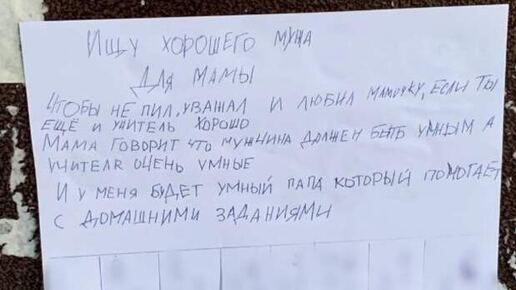 Ищу хорошего мужа
для мамы
чтобы не пил, уважал и любил мамочку, если ты
ещё и учитель хорошо
Мама говорит что мужчина должен быть умным а
учителя очень умные
И у меня будет умный папа который помогает
с домашними заданиями